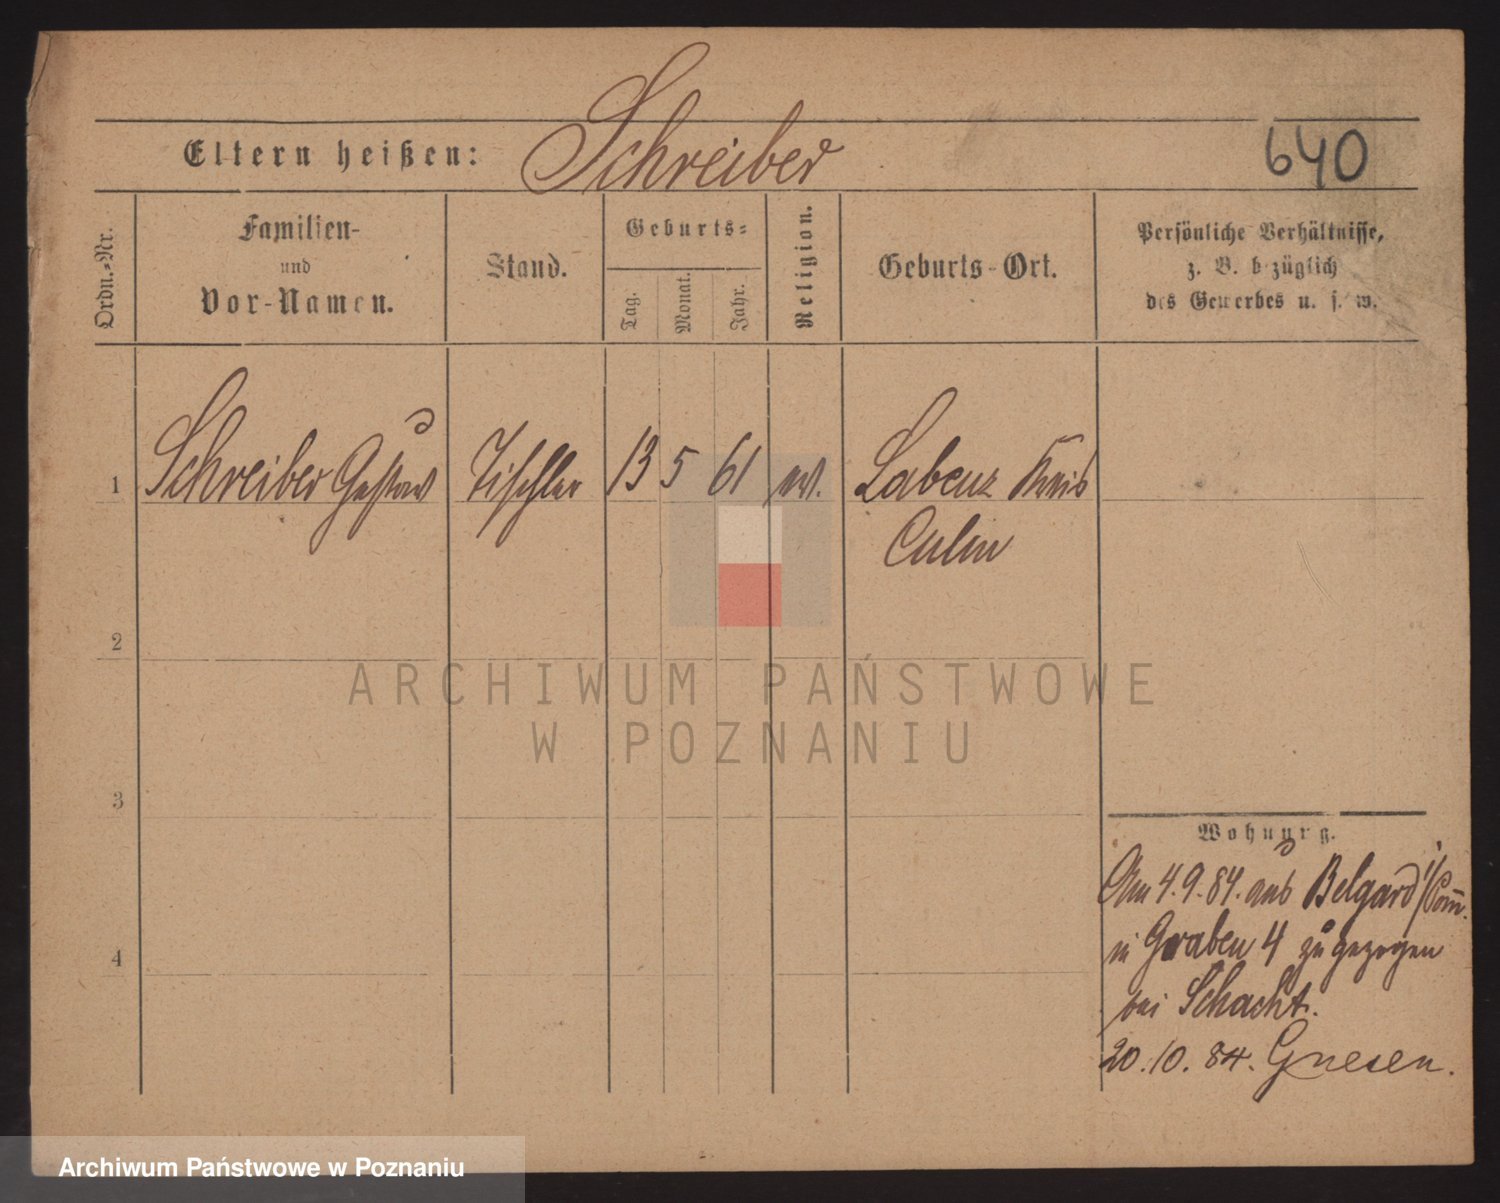 Eltern heißen: Schreiber
640
Ordn.-Nr.
Familien- und Vor-Namen.
Stand.
Geburts-
Tag.
Monat.
Jahr.
Religion.
Geburts-Ort.
Persönliche Verhältnisse,
z. B. bezüglich
des Gewerbes u. s. w.
1 Schreiber Gustav Tischler 13 5 61 ev. Labenz Kreis
Culm
2
3
4
Wohnung.
Am 4.9.84. aus Belgard i/Pom.
in Graben 4 zugezogen
bei Schacht.
20.10.84. Gnesen.
ARCHIWUM PAŃSTWOWE
W POZNANIU
Archiwum Państwowe w Poznaniu